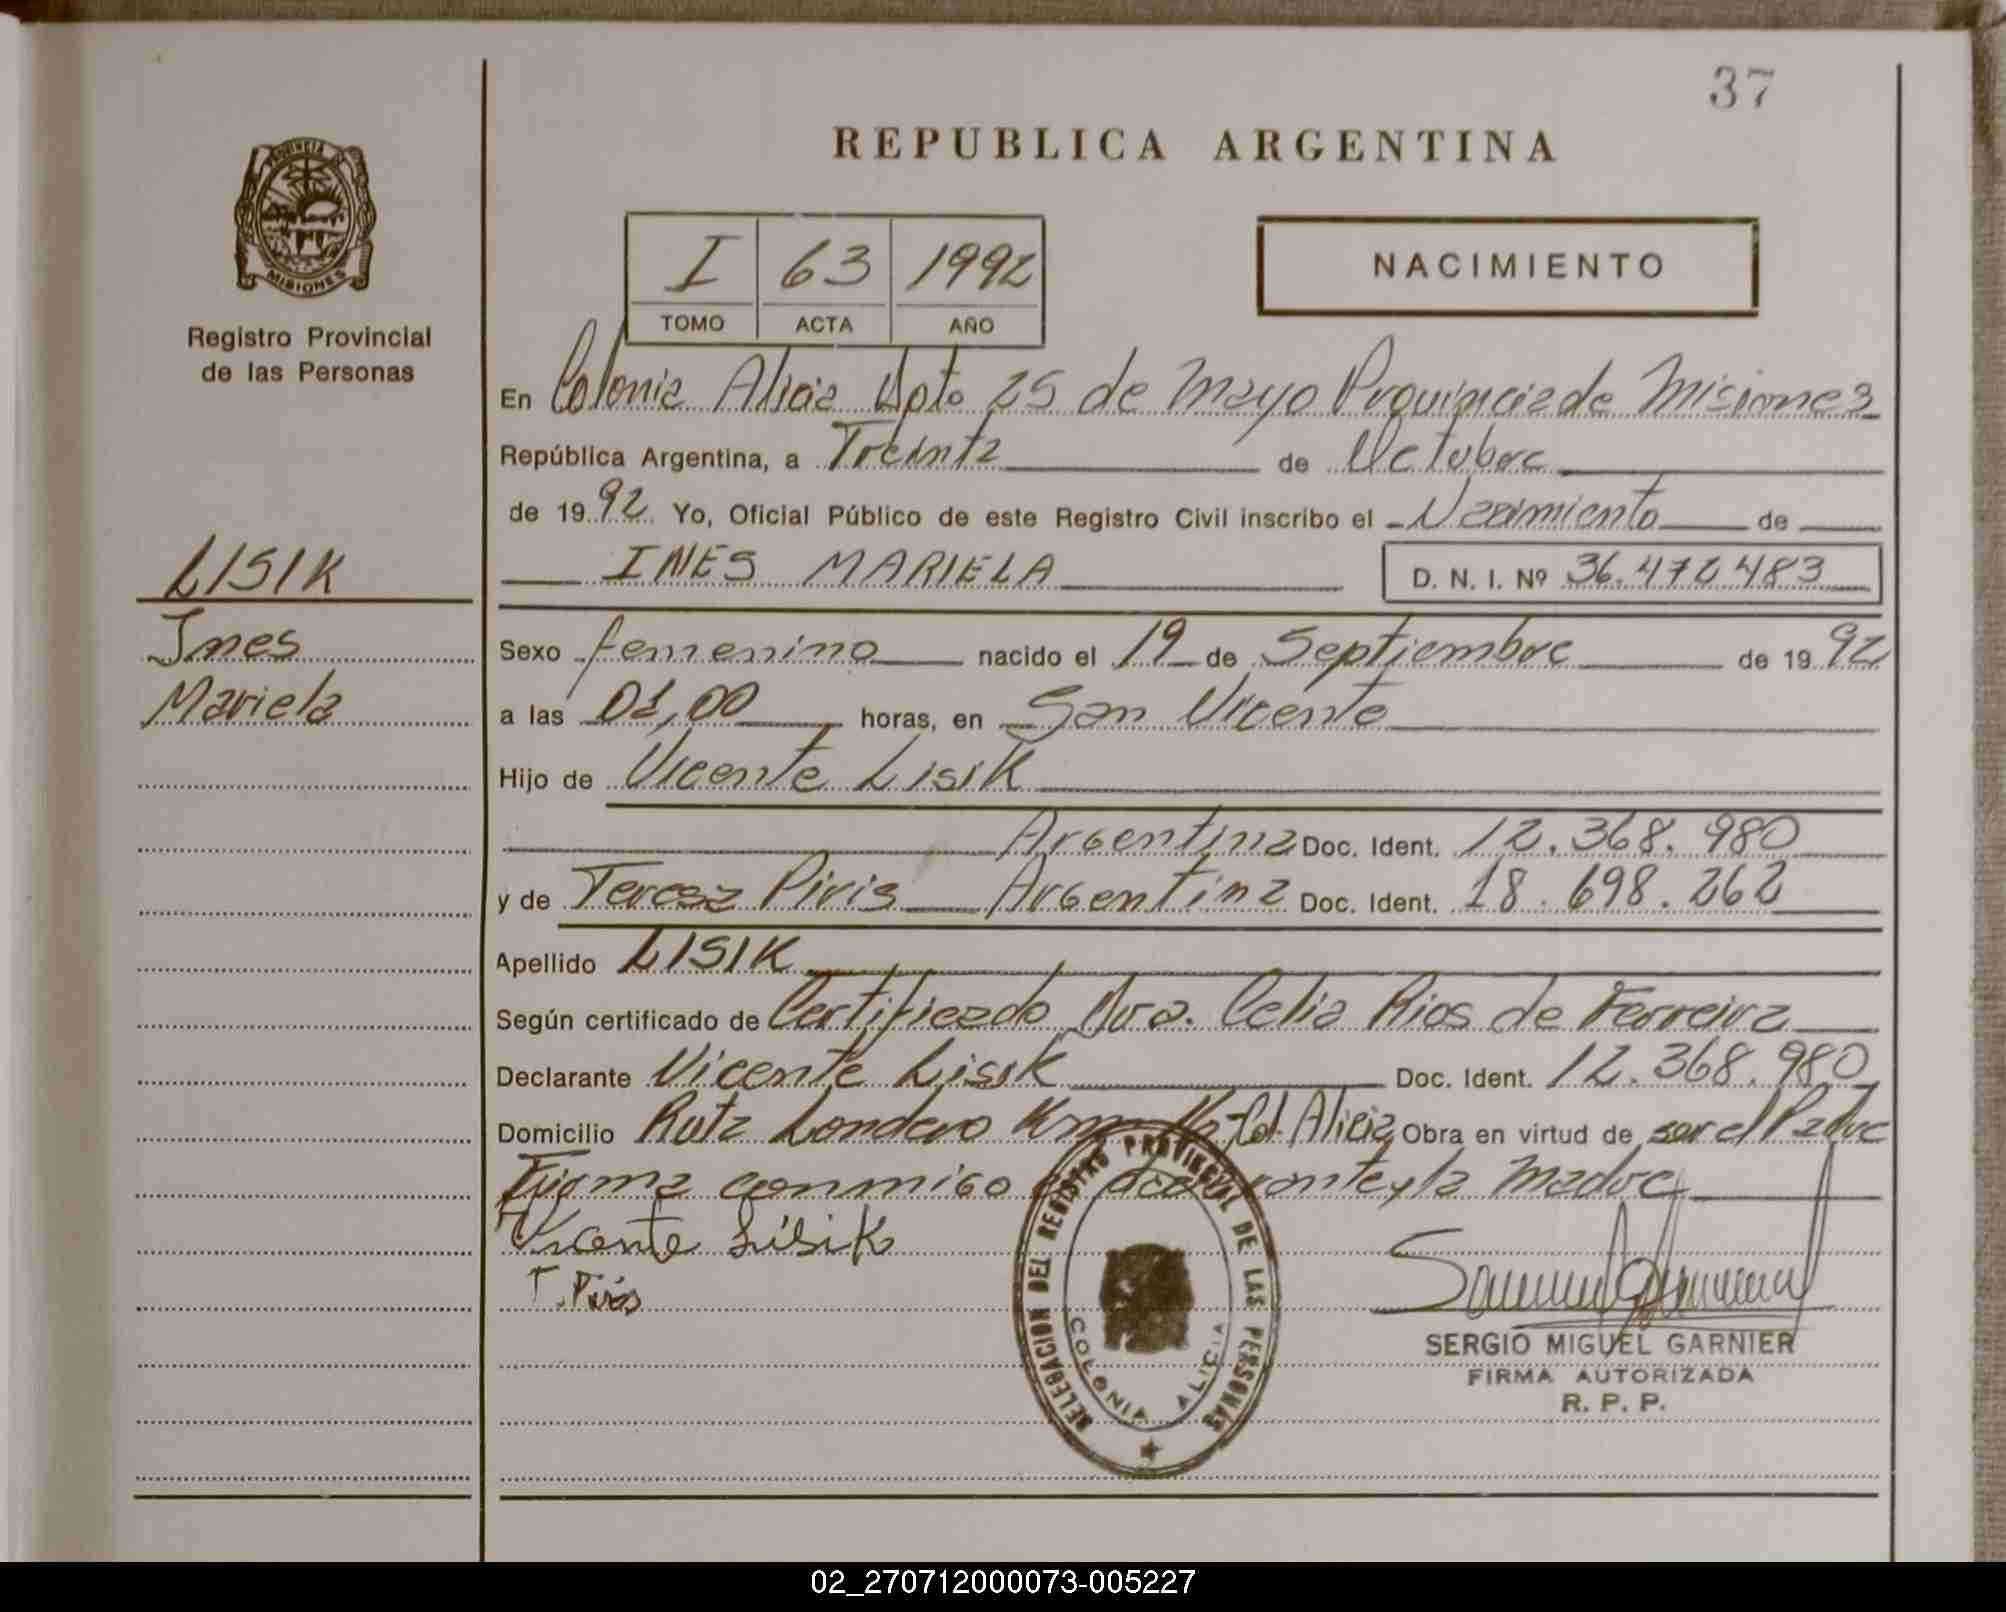 37
REPUBLICA ARGENTINA
PROVINCIA DE
MISIONES
Registro Provincial
de las Personas
I 63 1992
TOMO ACTA AÑO
NACIMIENTO
En Colonia Alicia Dpto 25 de Mayo Provincia de Misiones
República Argentina, a Treinta de Octubre
de 1992 Yo, Oficial Público de este Registro Civil inscribo el Nacimiento de
INES MARIELA D. N. I. Nº 36.472.483
LISIK
Ines
Mariela
Sexo femenino nacido el 19 de Septiembre de 1992
a las 01,00 horas, en San Vicente
Hijo de Vicente Lisik
Argentina Doc. Ident. 12.368.980
y de Teresa Piris Argentina Doc. Ident. 18.698.262
Apellido LISIK
Según certificado de Certificado Dra. Celia Rios de Ferreira
Declarante Vicente Lisik Doc. Ident. 12.368.980
Domicilio Ruta Londero Km Col. Alicia Obra en virtud de ser el Padre
Firma conmigo el declarante y la Madre
Vicente Lisik
T. Piris
DELEGACION DEL REGISTRO PROVINCIAL DE LAS PERSONAS
COLONIA ALICIA
SERGIO MIGUEL GARNIER
FIRMA AUTORIZADA
R. P. P.
02_270712000073-005227